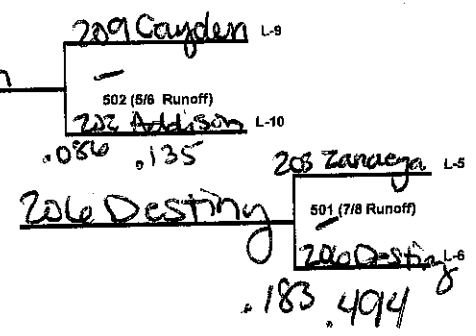 209 Cayden L-9
502 (5/6 Runoff)
202 Addison L-10
.086 .135
203 Zanaeya L-5
206 Destiny
501 (7/8 Runoff)
206 Destiny L-6
.183 .494